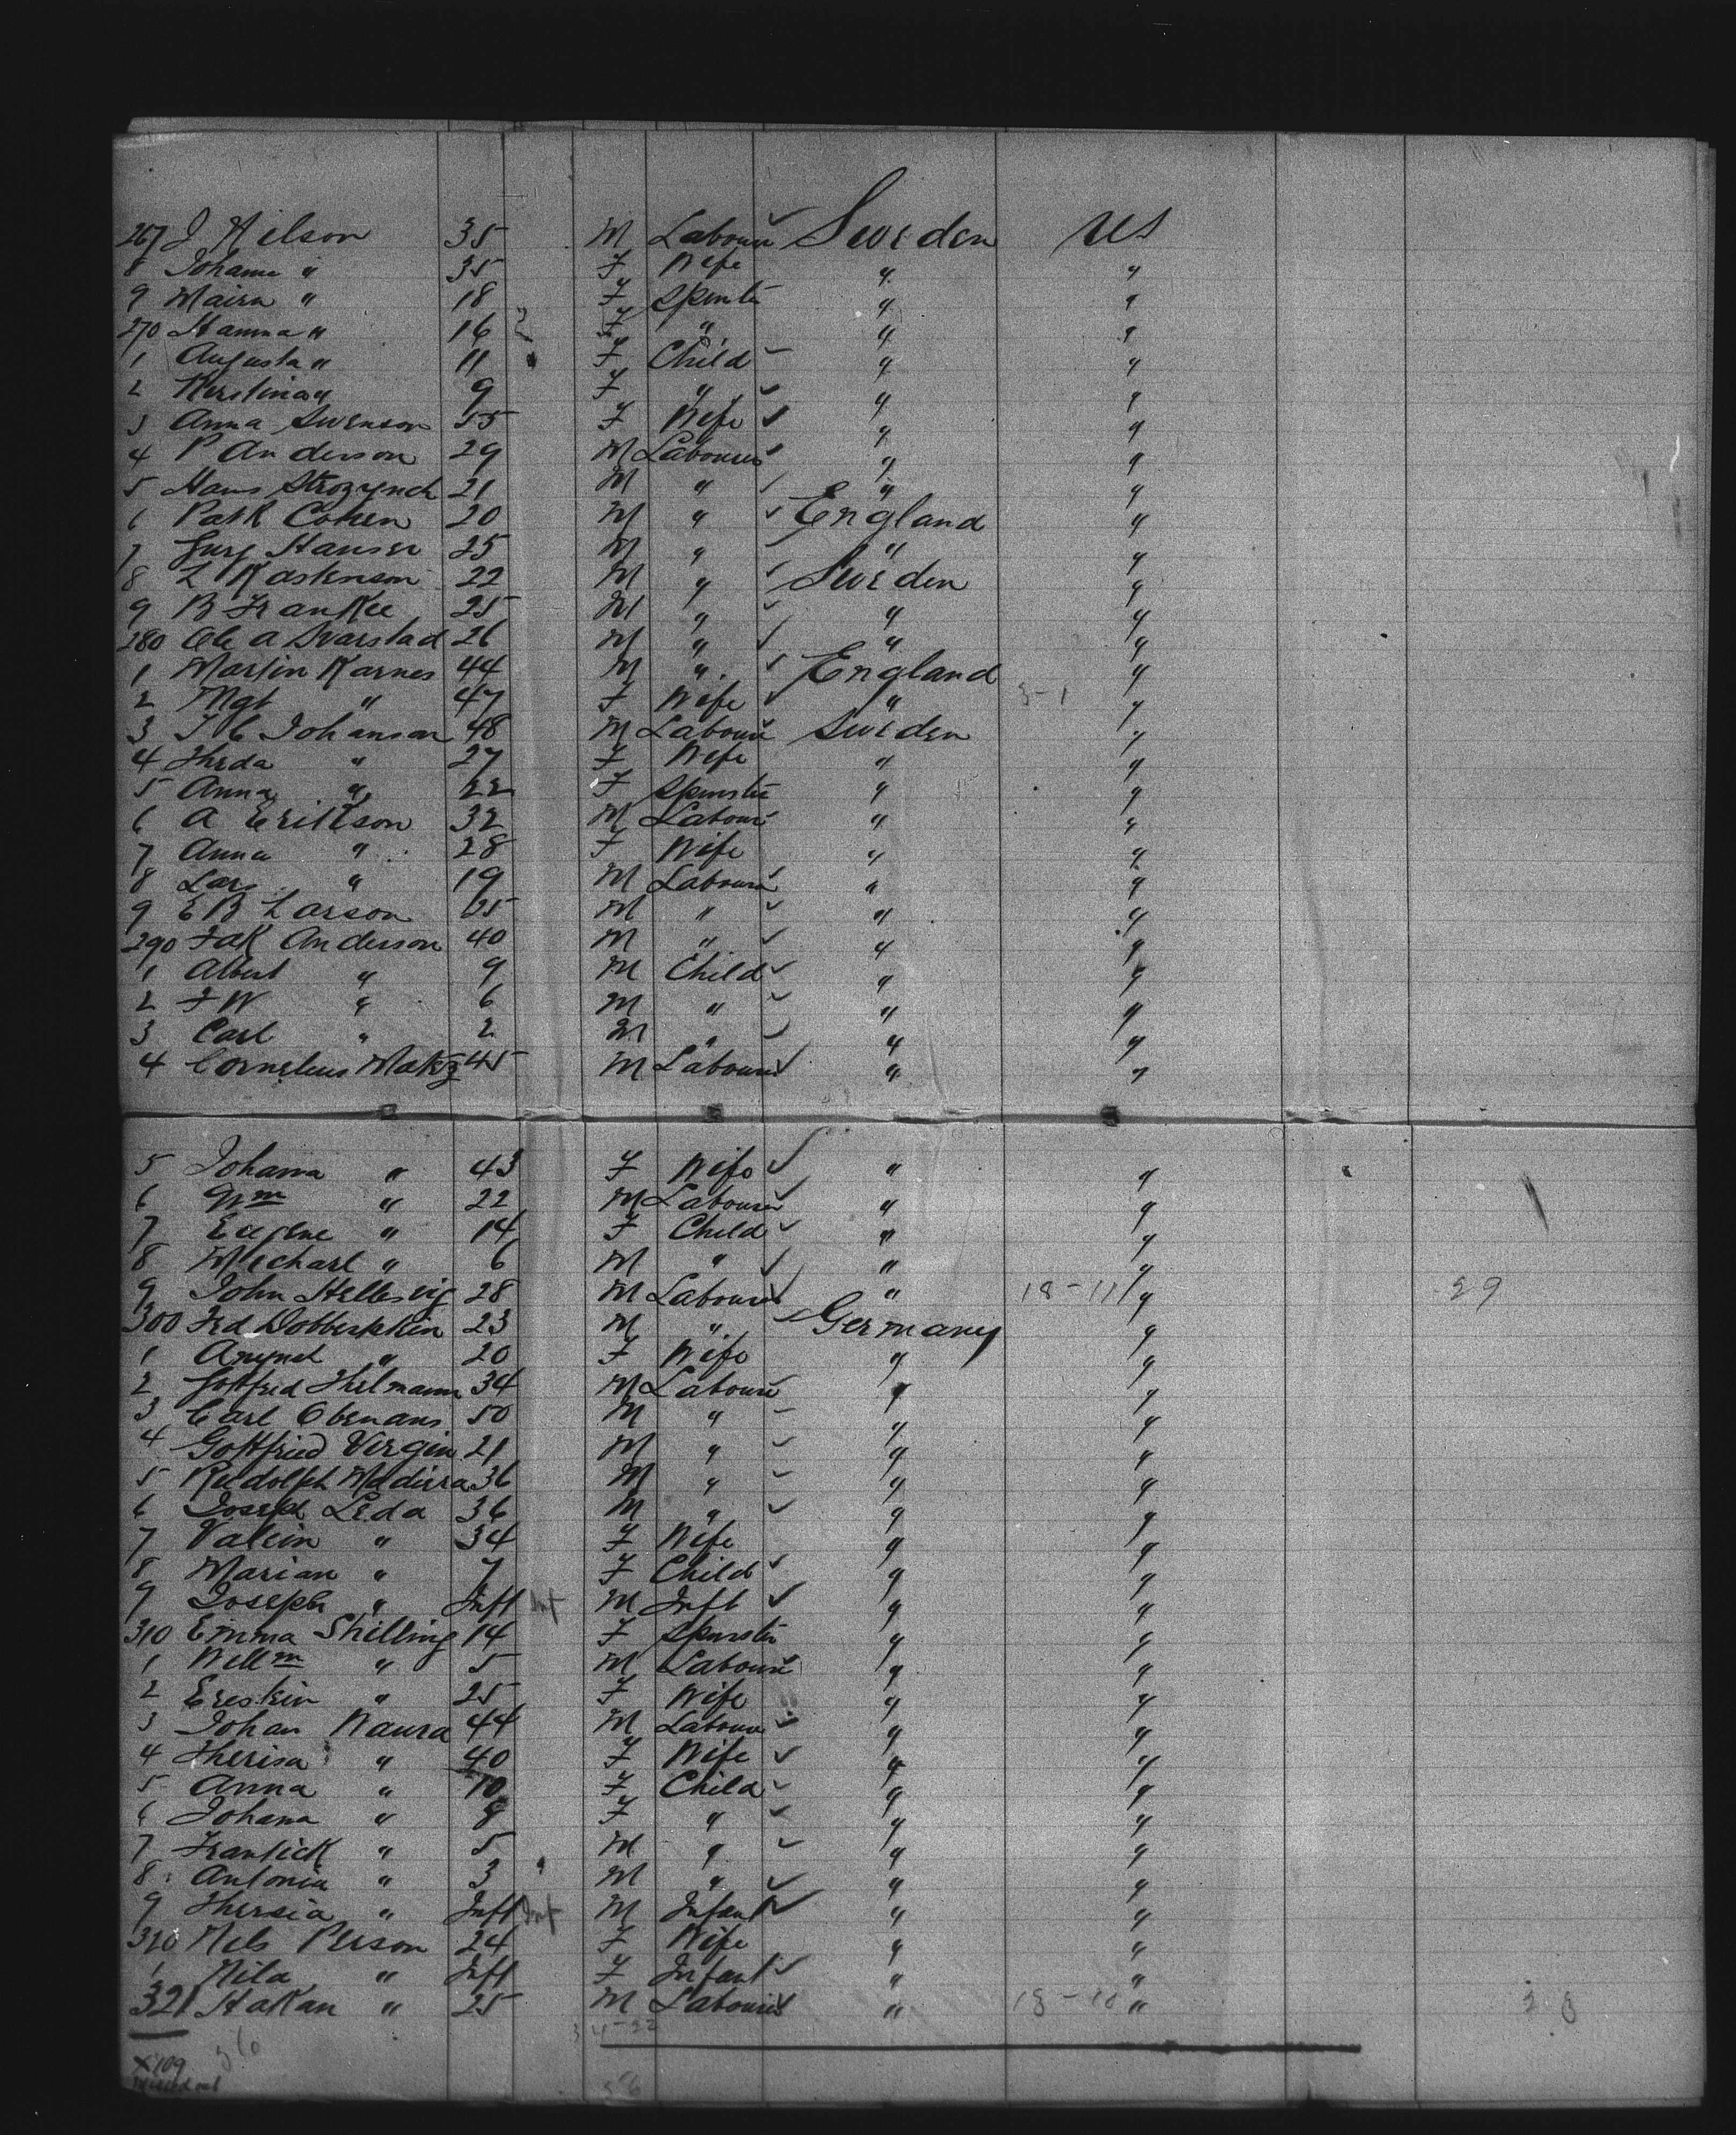 267 J Nilson 35 M Labourer Sweden US
8 Johana " 35 F Wife " "
9 Maira " 18 F Spinster " "
270 Hanna " 16 F " " "
1 Augusta " 11 F Child " "
2 Kerstina " 9 F " " "
3 Anna Swenson 55 F Wife " "
4 P Anderson 29 M Labourer " "
5 Hans 21 M " " "
6 Patk Cohen 20 M " England "
7 Hanser 25 M " " "
8 L Kastenson 22 M " Sweden "
9 B Frankee 25 M " " "
280 Ole A Svarstad 26 M " " "
1 Martin Karnes 44 M " England "
2 Mgt " 47 F Wife " 3-1 "
3 J C Johanson 48 M Labourer Sweden "
4 Threda " 27 F Wife " "
5 Anna " 22 F Spinster " "
6 A Erikson 32 M Labourer " "
7 Anna " 28 F Wife " "
8 Lars " 19 M Labourer " "
9 E B Larson 65 M " " "
290 Jak Anderson 40 M " " "
1 Albert " 9 M Child " "
2 F W " 6 M " " "
3 Carl " 2 M " " "
4 Cornelius 45 M Labourer " "
5 Johana " 43 F Wife " "
6 Wm " 22 M Labourer " "
7 Eugene " 14 F Child " "
8 Michael " 6 M " " "
9 John Hellesvig 28 M Labourer " 18-11 " 29
300 Fred Dobberpkin 23 M " Germany "
1 " 20 F Wife " "
2 Gottfried Thielmann 34 M Labourer " "
3 Carl Obenaus 50 M " " "
4 Gottfried Virgin 21 M " " "
5 Rudolph Madiera 36 M " " "
6 Joseph Leda 36 M " " "
7 Valein " 34 F Wife " "
8 Marian " 7 F Child " "
9 Joseph " Inft Inf M Inft " "
310 Emma Shilling 14 F Spinster " "
1 Willm " 5 M Labourer " "
2 Ereskin " 25 F Wife " "
3 Johan Waura 44 M Labourer " "
4 Therisa " 40 F Wife " "
5 Anna " 10 F Child " "
6 Johana " 8 F " " "
7 Frantick " 5 M " " "
8 Antonia " 3 M " " "
9 Thersia " Inft Inf M Infant " "
320 Nels Person 24 F Wife " "
1 Nila " Inft F Infant " "
321 Hakan " 25 M Labourer " 18-10 " 28
X 109